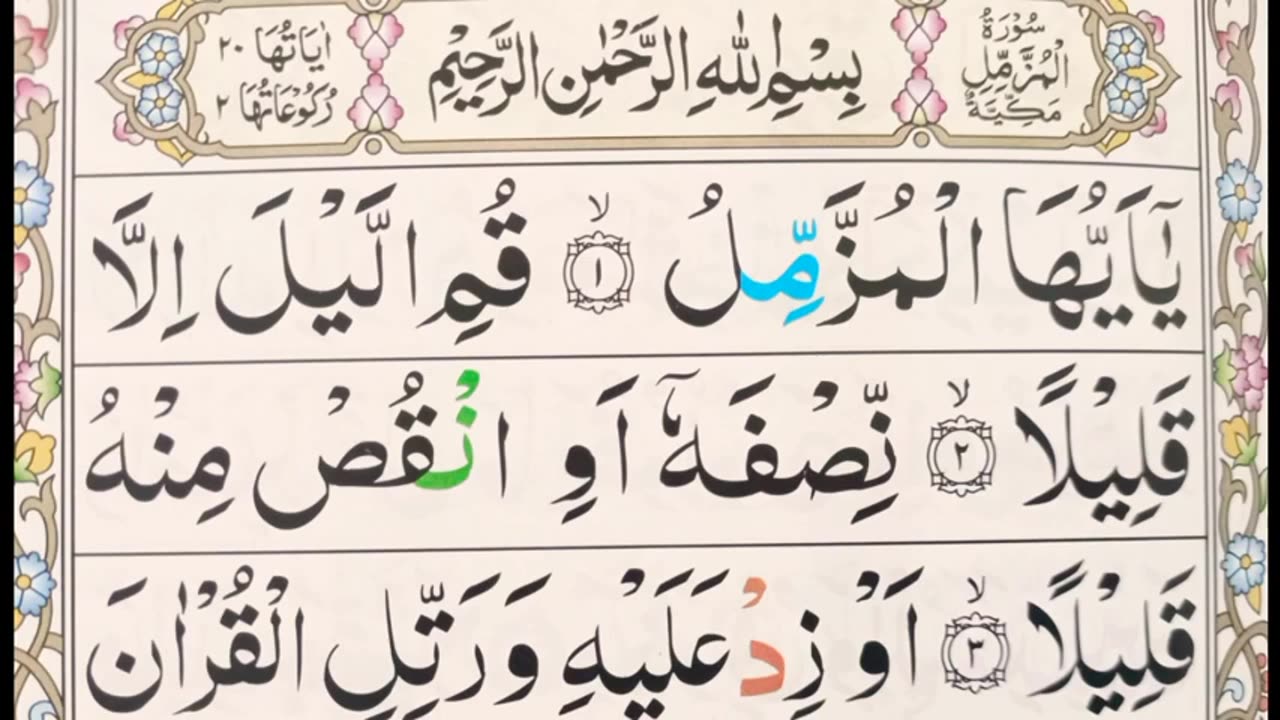 سُوْرَةُ
الْمُزَّمِّلِ
مَكِّيَّةٌ
بِسْمِ اللّٰهِ الرَّحْمٰنِ الرَّحِيْمِ
اٰيَاتُهَا ٢٠
رُكُوْعَاتُهَا ٢
يٰۤاَيُّهَا الْمُزَّمِّلُ ۙ ١ قُمِ الَّيْلَ اِلَّا
قَلِيْلًا ۙ ٢ نِّصْفَهٗۤ اَوِ انْقُصْ مِنْهُ
قَلِيْلًا ۙ ٣ اَوْ زِدْ عَلَيْهِ وَرَتِّلِ الْقُرْاٰنَ